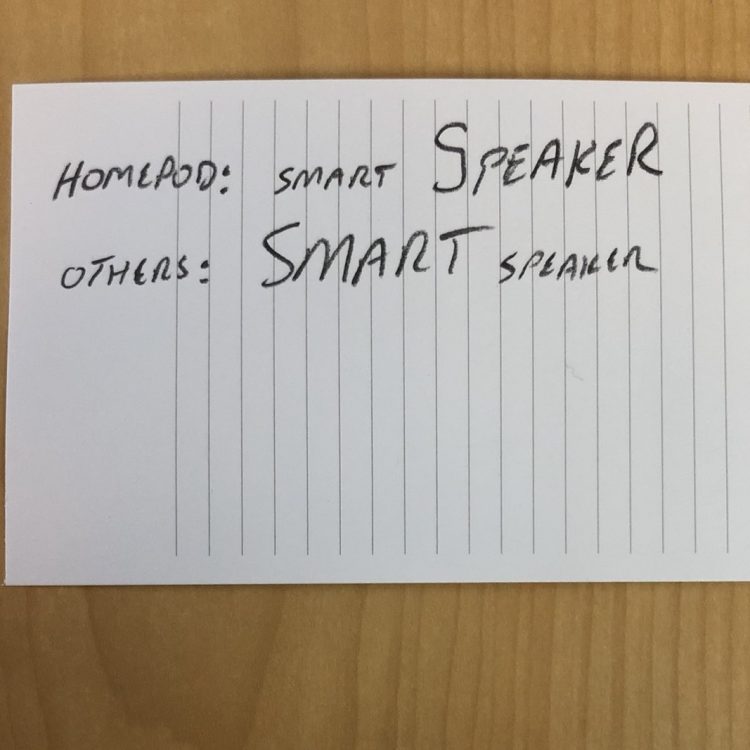 HOMEPOD: SMART SPEAKER
OTHERS: SMART SPEAKER